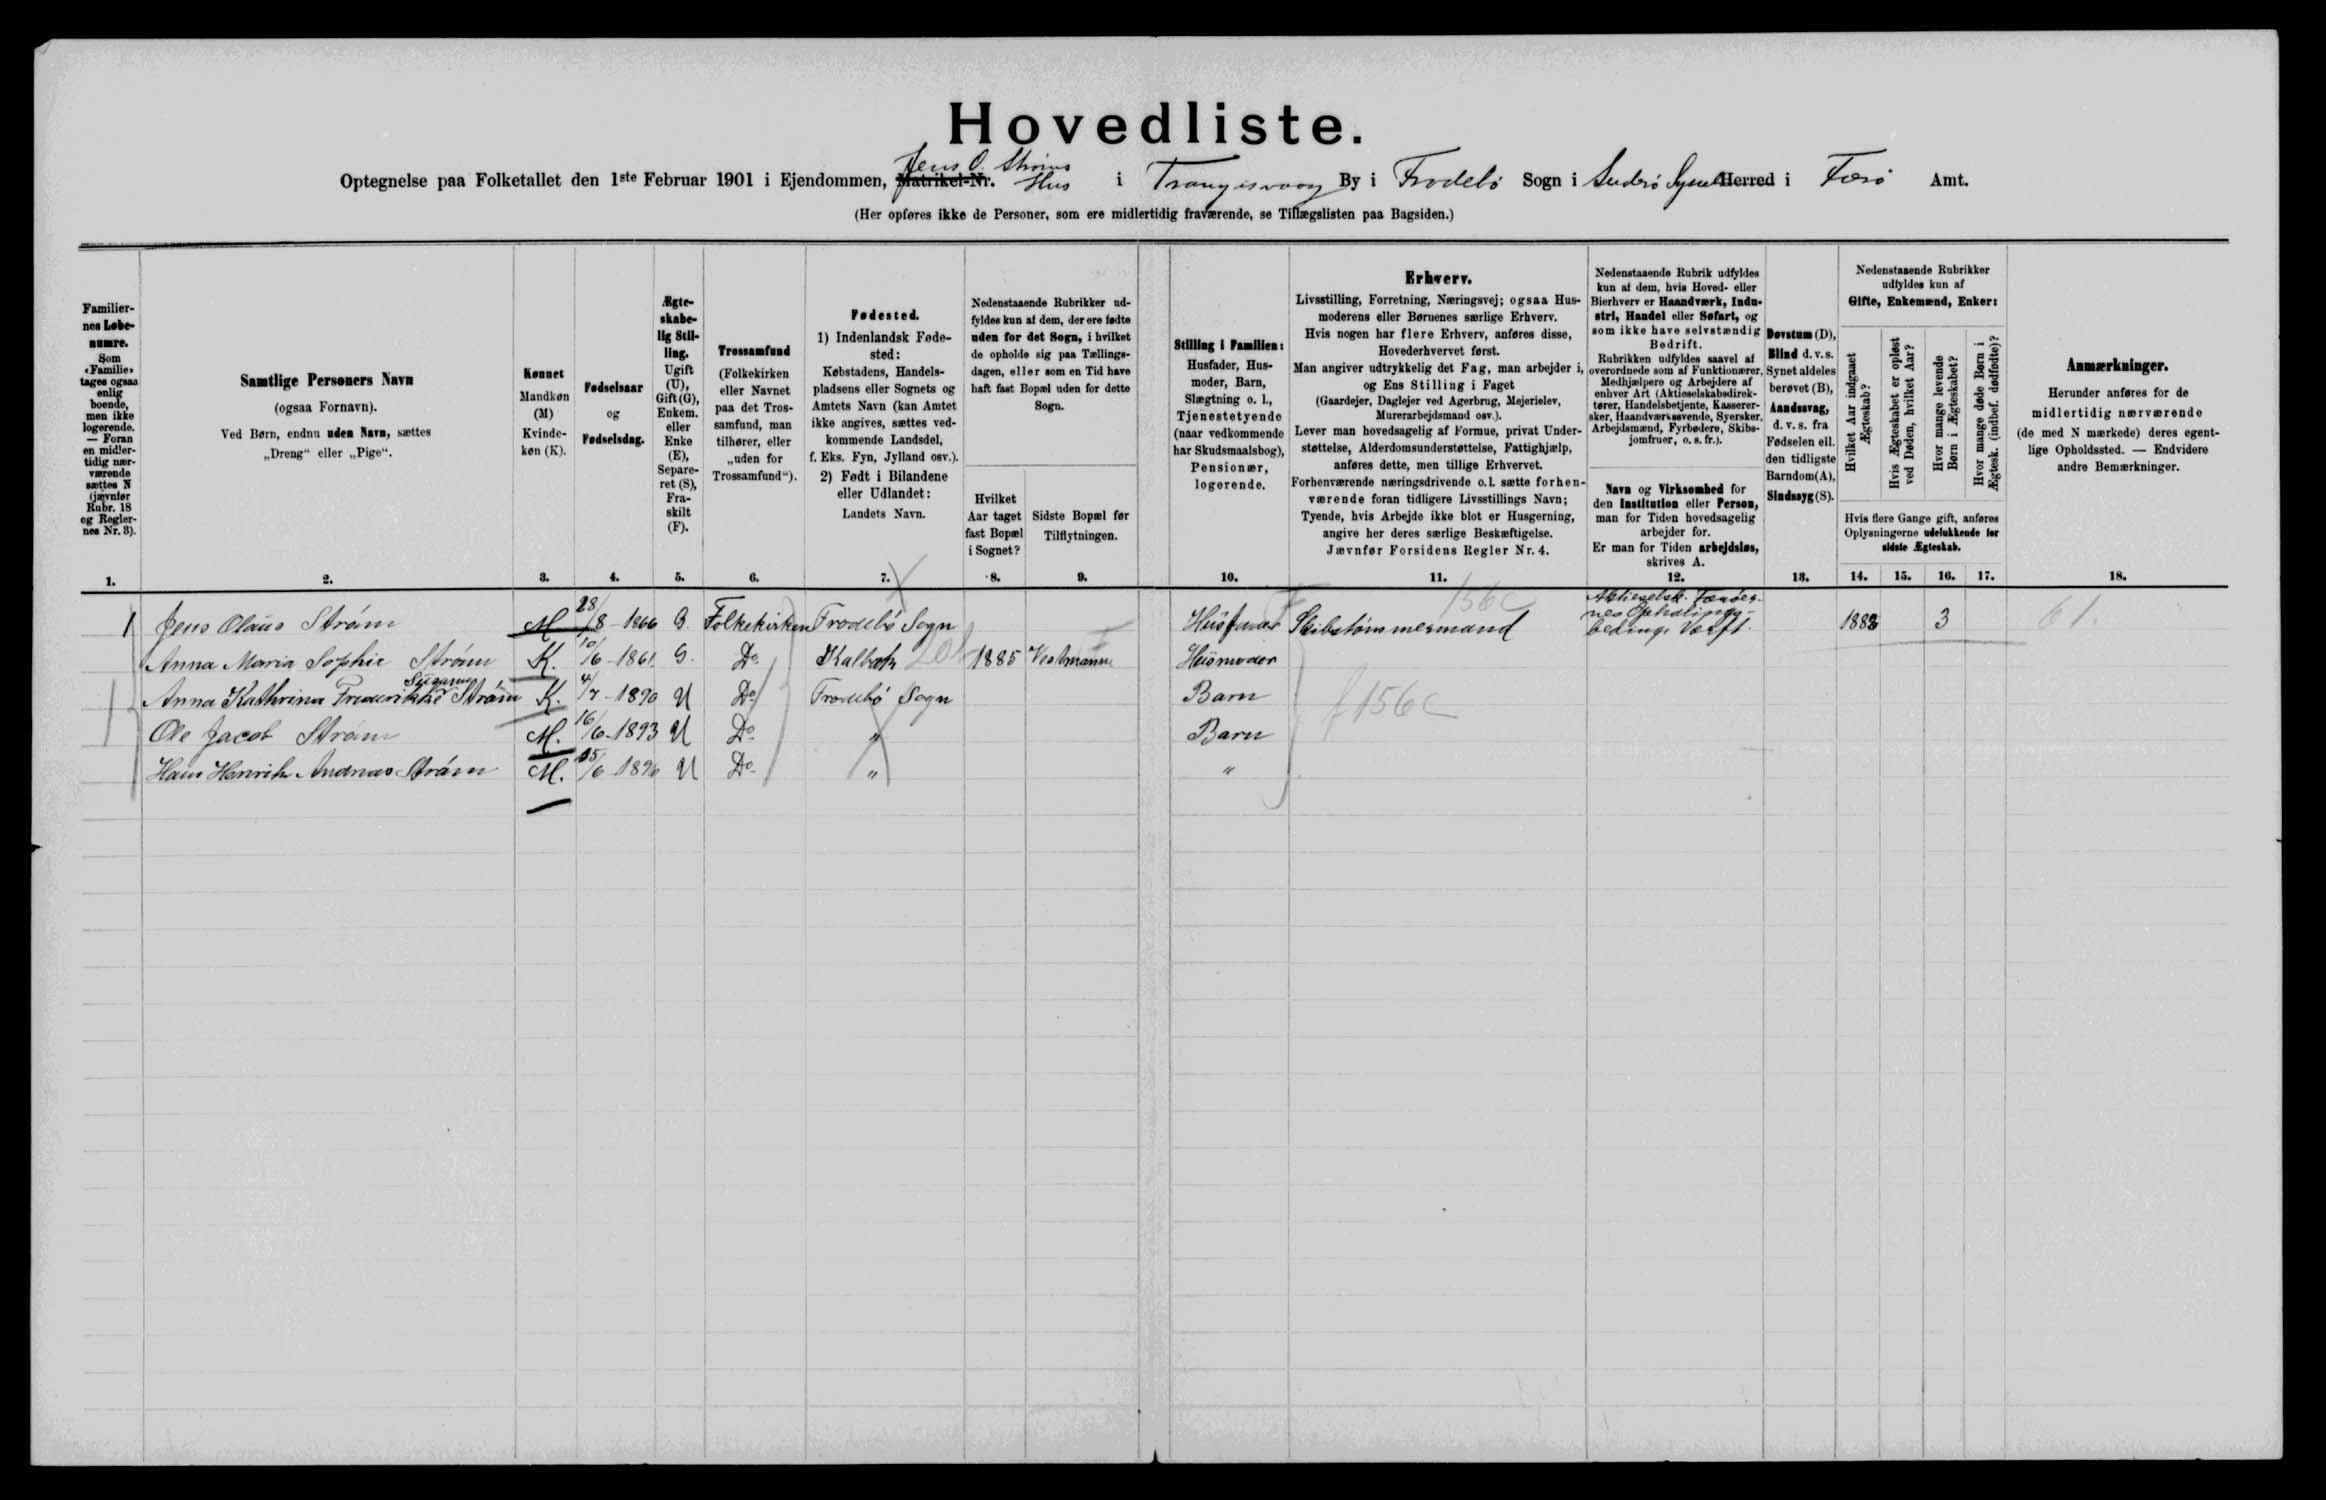 Hovedliste.
Optegnelse paa Folketallet den 1ste Februar 1901 i Ejendommen, Matrikel-Nr. Jens O. Ströms Hus i Trangisvaag By i Frodebö Sogn i Suderö Syssel Herred i Færö Amt.
(Her opføres ikke de Personer, som ere midlertidig fraværende, se Tillægslisten paa Bagsiden.)
Familier-
nes Løbe-
numre.
Som
«Familie»
tages ogsaa
enlig
boende,
men ikke
logerende.
— Foran
en midler-
tidig nær-
værende
sættes N
(jævnfør
Rubr. 18
og Regler-
nes Nr. 3).
1.
Samtlige Personers Navn
(ogsaa Fornavn).
Ved Børn, endnu uden Navn, sættes
„Dreng“ eller „Pige“.
2.
Kønnet
Mandkøn
(M)
Kvinde-
køn (K).
3.
Fødselsaar
og
Fødselsdag.
4.
Ægte-
skabe-
lig Stil-
ling.
Ugift
(U),
Gift (G),
Enkem.
eller
Enke
(E),
Separe-
ret (S),
Fra-
skilt
(F).
5.
Trossamfund
(Folkekirken
eller Navnet
paa det Tros-
samfund, man
tilhører, eller
„uden for
Trossamfund“).
6.
Fødested.
1) IndenlandskFøde-
sted:
Købstadens, Handels-
pladsens eller Sognets og
Amtets Navn (kan Amtet
ikke angives, sættes ved-
kommende Landsdel,
f. Eks. Fyn, Jylland osv.).
2) Født i Bilandene
eller Udlandet:
Landets Navn.
7.
Nedenstaaende Rubrikker ud-
fyldes kun af dem, der ere fødte
uden for det Sogn, i hvilket
de opholde sig paa Tællings-
dagen, eller som en Tid have
haft fast Bopæl uden for dette
Sogn.
Hvilket
Aar taget
fast Bopæl
i Sognet?
8.
Sidste Bopæl før
Tilflytningen.
9.
Stilling i Familien:
Husfader, Hus-
moder, Barn,
Slægtning o. l.,
Tjenestetyende
(naar vedkommende
har Skudsmaalsbog),
Pensionær,
logerende.
10.
Erhverv.
Livsstilling, Forretning, Næringsvej; ogsaa Hus-
moderens eller Børnenes særlige Erhverv.
Hvis nogen har flere Erhverv, anføres disse,
Hovederhvervet først.
Man angiver udtrykkelig det Fag, man arbejder i,
og Ens Stilling i Faget
(Gaardejer, Daglejer ved Agerbrug, Mejerielev,
Murerarbejdsmand osv.).
Lever man hovedsagelig af Formue, privat Under-
støttelse, Alderdomsunderstøttelse, Fattighjælp,
anføres dette, men tillige Erhvervet.
Forhenværende næringsdrivende o.l. sætte forhen-
værende foran tidligere Livsstillings Navn;
Tyende, hvis Arbejde ikke blot er Husgerning,
angive her deres særlige Beskæftigelse.
Jævnfør Forsidens Regler Nr. 4.
11.
Nedenstaaende Rubrik udfyldes
kun af dem, hvis Hoved- eller
Bierhverv er Haandværk, Indu-
stri, Handel eller Søfart, og
som ikke have selvstændig
Bedrift.
Rubrikken udfyldes saavel af
overordnede som af Funktionærer,
Medhjælpere og Arbejdere af
enhver Art (Aktieselskabsdirek-
tører, Handelsbetjente, Kasserer-
sker, Haandværkssvende, Syersker,
Arbejdsmænd, Fyrbødere, Skibs-
jomfruer, o. s. fr.).
Navn og Virksomhed for
den Institution eller Person,
man for Tiden hovedsagelig
arbejder for.
Er man for Tiden arbejdsløs,
skrives A.
12.
Døvstum (D),
Blind d. v. s.
Synet aldeles
berøvet (B),
Aandssvag,
d. v. s. fra
Fødselen ell.
den tidligste
Barndom (A),
Sindssyg (S).
13.
Nedenstaaende Rubrikker
udfyldes kun af
Gifte, Enkemænd, Enker:
Hvilket Aar indgaaet
Ægteskab?
Hvis Ægteskabet er opløst
ved Døden, hvilket Aar?
Hvor mange levende
Børn i Ægteskabet?
Hvor mange døde Børn i
Ægtesk. (indbef. dødfødte)?
Hvis flere Gange gift, anføres
Oplysningerne udelukkende for
sidste Ægteskab.
14. 15. 16. 17.
Anmærkninger.
Herunder anføres for de
midlertidig nærværende
(de med N mærkede) deres egent-
lige Opholdssted. — Endvidere
andre Bemærkninger.
18.
1 Jens Olaus Ström M 28/8-1866 G. Folkekirken Frodebö Sogn Husfader Skibstømmermand 156c Aktieselsk. Færöer-
nes Ophalings-
bedings Værft. 1883 3 61.
Anna Maria Sophie Ström K. 10/6-1861 G. Do Kalbak 1885 Vestmanna Husmoder
Anna Kathrina Frederikke Susanna Ström K. 4/7-1890 U Do Frodebö Sogn Barn f 156c
Ole Jacob Ström M. 16/6-1893 U Do " Barn
Hans Henrik Andreas Ström M. 15/6-1896 U Do " "